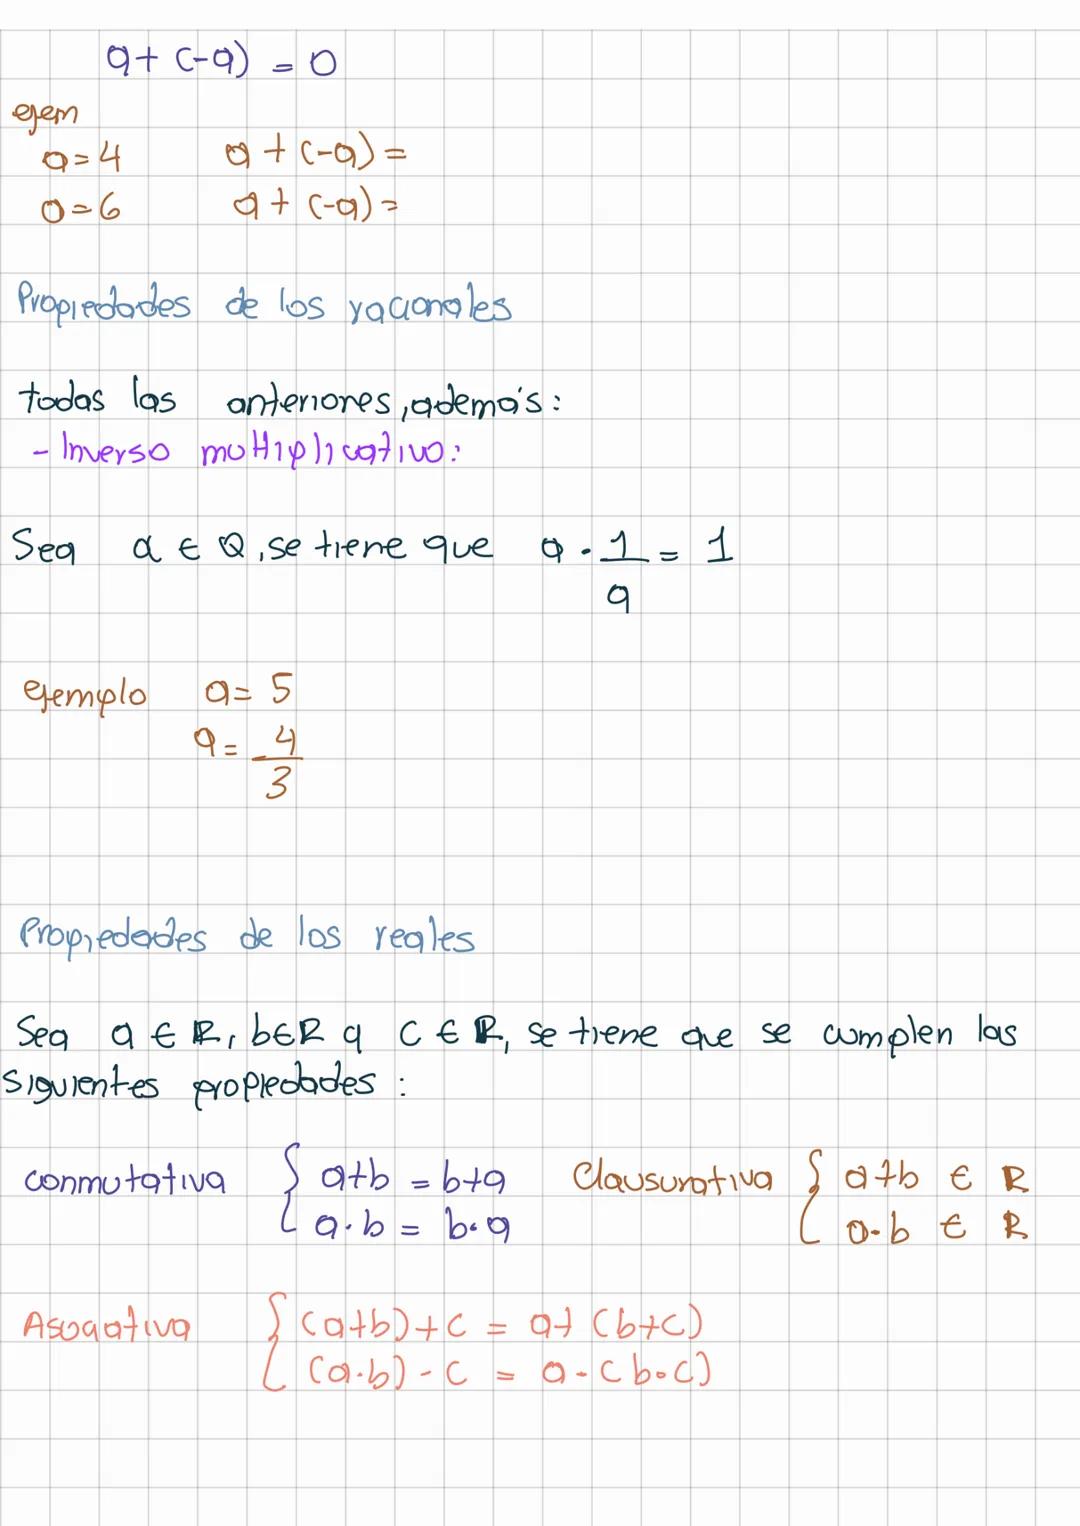 a + (-a) = 0
ejem
a = 4 a + (-a) =
a = 6 a + (-a) =
Propiedades de los racionales
todas las anteriores, además:
- Inverso multiplicativo:
Sea a ∈ Q, se tiene que a · 1/a = 1
ejemplo a = 5
a = -4/3
Propiedades de los reales
Sea a ∈ R, b ∈ R q c ∈ R, se tiene que se cumplen las
siguientes propiedades :
conmutativa { a+b = b+a Clausurativa { a+b ∈ R
a·b = b·a a·b ∈ R
Asociativa { (a+b)+c = a+(b+c)
(a·b)·c = a·(b·c)